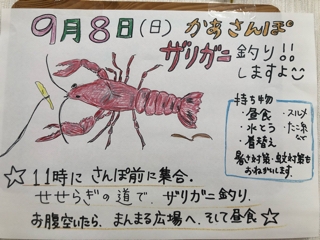 9月8日(日) かあさんぽ
ザリガニ釣り!!
しますよ
持ち物
・昼食 ・スルメ
・水とう ・たこ糸
・着替え など
暑さ対策・蚊対策も
おねがいします。
☆11時に さんぽ前に集合。
せせらぎの道で ザリガニ釣り。
お腹空いたら まんまる広場へ、そして昼食☆